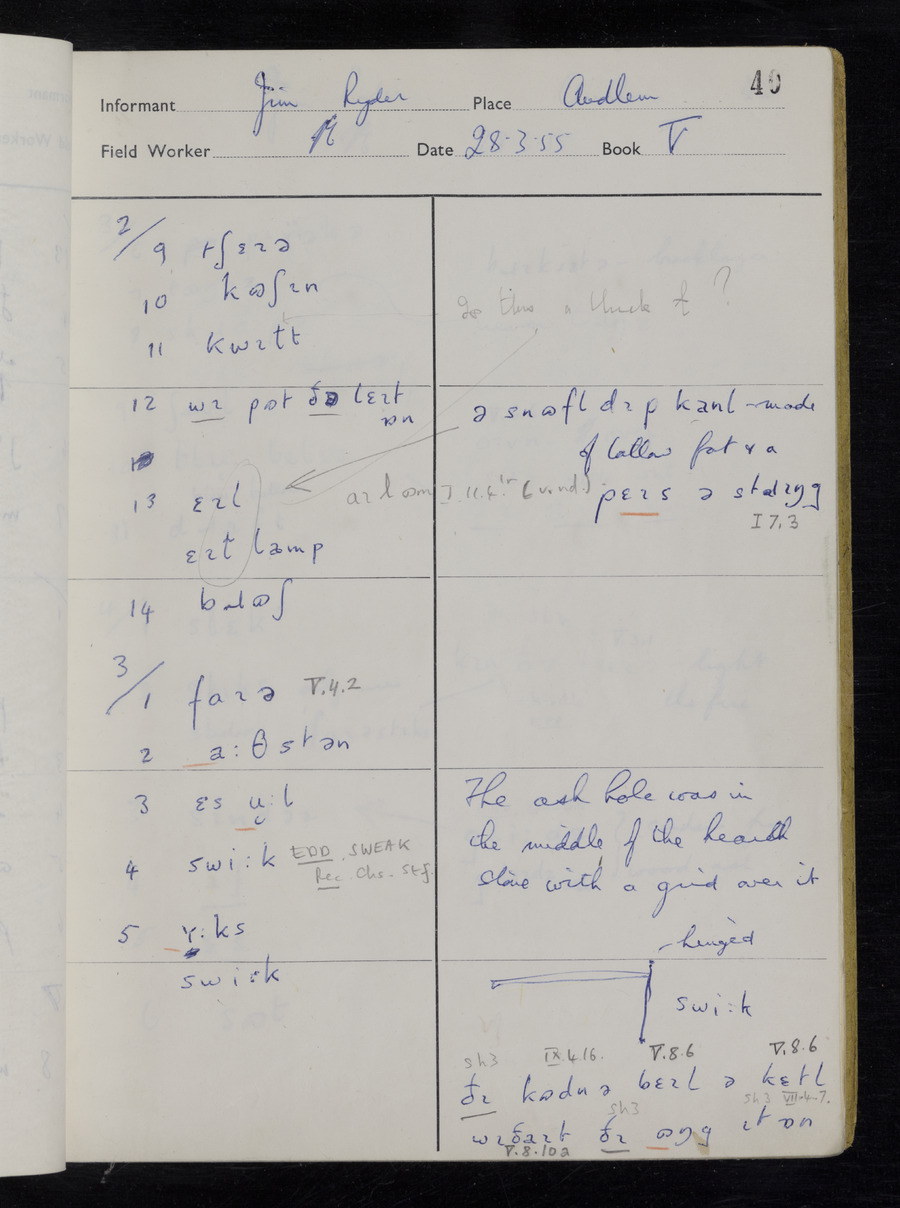 40
Informant Jim Ryder Place Audlem
Field Worker Date 28-3-55 Book V
2/9 tʃɛɪə
10 kɷʃɪn
11 kwɪɫt
Is this a thick ɫ ?
12 wɪ pɒt ðə lɛɪt ɒn
ə snɷfl dɪp kanl - made
of tallow fat & a
pɛɪs ə stɑɪŋg
I 7.3
13 ɛɪl
I.11.4
ɛɪɫ lamp
14 bɹɷʃ
3/1 faɪə V.4.2
2 a:θstən
3 ɛs u:l
The ash hole was in
the middle of the hearth
stone with a grid over it
4 swi:k EDD SWEAK
Rec. Chs. Stf.
5 ʏ:ks
hinged
swi:k
swi:k
sh3 IX.4.16. V.8.6 V.8.6
ðɪ kɷdnə bɛɪl ə kɛtl
sh3 sh3 VII.4.7.
wɪðaɪt ðɪ ɷŋg ɪt ɒn
V.8.10a